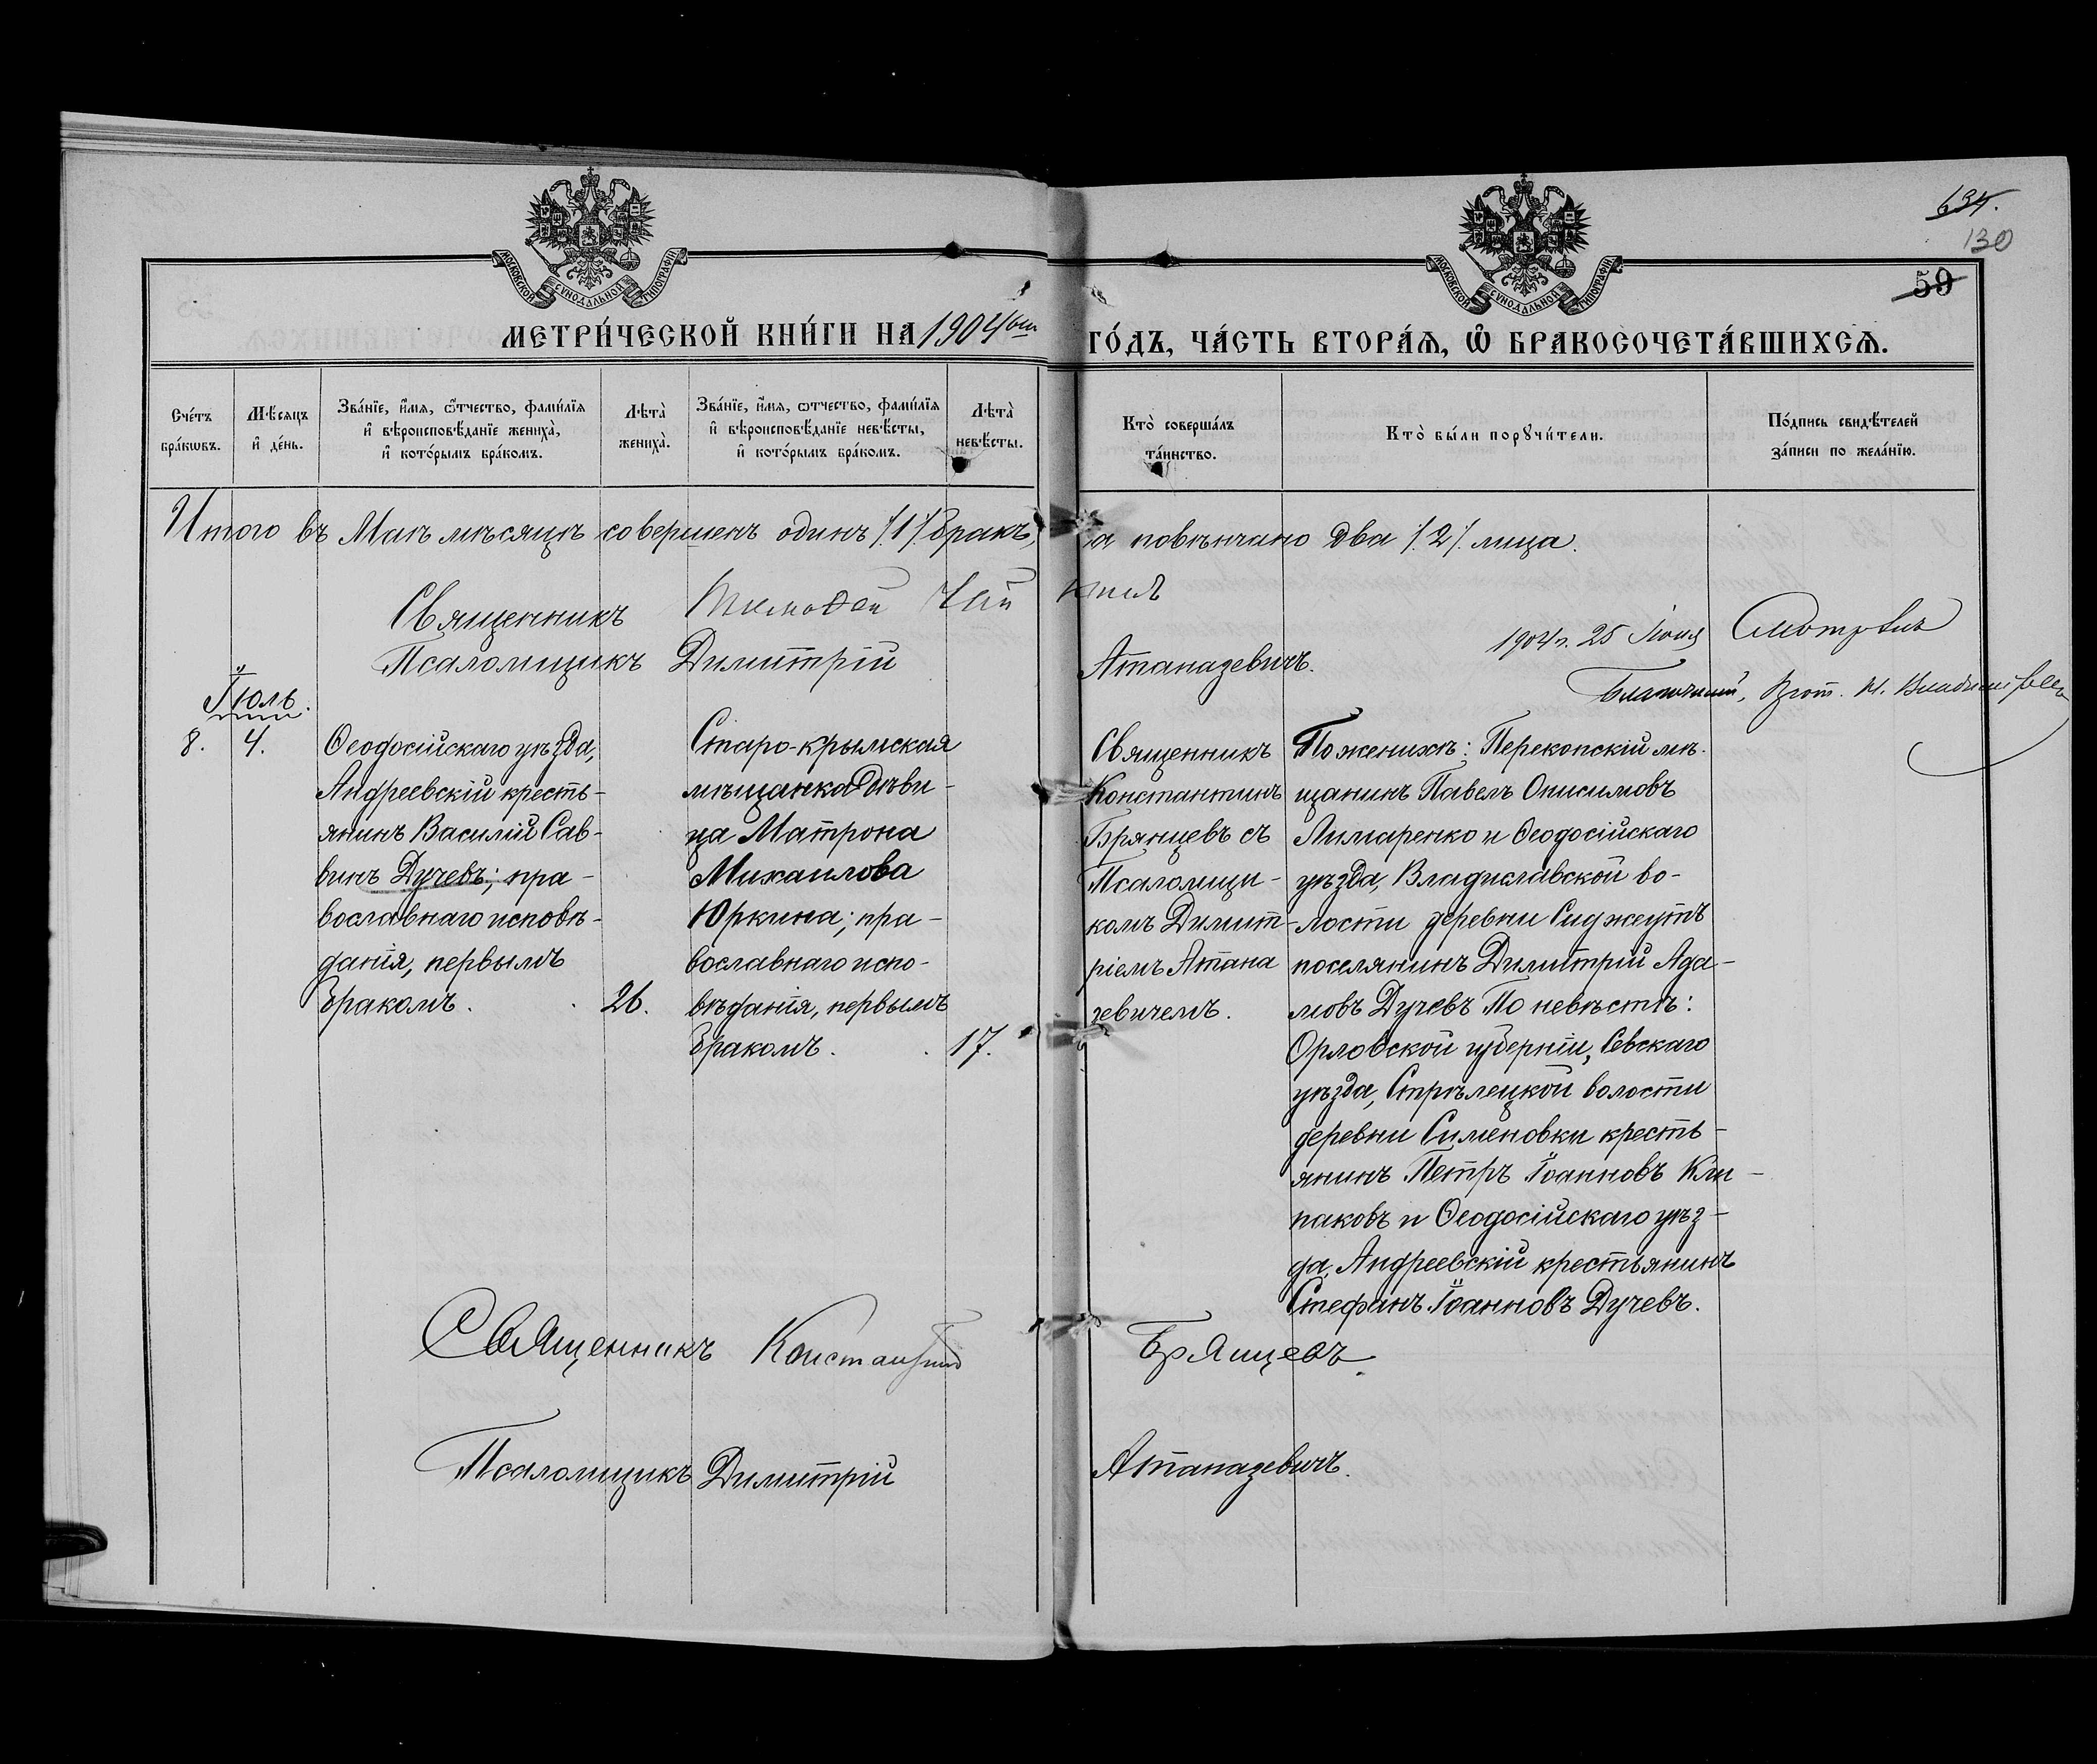 634.
130
59
МОСКОВСКОЙ СѴНОДАЛЬНОЙ ТИПОГРАФІИ
МОСКОВСКОЙ СѴНОДАЛЬНОЙ ТИПОГРАФІИ
МЕТРИ́ЧЕСКОЙ КНИ́ГИ НА 1904ый ГО́ДЪ, ЧА́СТЬ ВТОРА́Ѧ, Ѽ БРАКОСОЧЕТА́ВШИХСѦ.
Сче́тъ
бра́кѡвъ.
Мѣ́сяцъ
и҆ де́нь.
Зва́нїе, и҆́мѧ, ѻ҆́тчество, фами́лїѧ
и҆ вѣроисповѣ́данїе жениха̀,
и҆ кото́рымъ бра́комъ.
Лѣта̀
жениха̀.
Зва́нїе, и҆́мѧ, ѻ҆́тчество, фами́лїѧ
и҆ вѣроисповѣ́данїе невѣ́сты,
и҆ кото́рымъ бра́комъ.
Лѣта̀
невѣ́сты.
Кто̀ соверша́лъ
та́инство.
Кто̀ бы́ли порꙋчи́тели.
По́дпись свидѣ́телей
за́писи по жела́нїю.
Итого въ Маѣ мѣсяцѣ совершенъ одинъ /.1/. бракъ, а повѣнчано два /.2/. лица.
Священникъ Тимофей
Псаломщикъ Димитрій Атаназевичъ.
1904 г. 25 Іюня Смотрѣлъ
Благочинный, Прот. И. Владимірскій
Іюль.
8. 4.
Ѳеодосійскаго уѣзда,
Андреевскій кресть-
янинъ Василій Сав-
винъ Дучевъ; пра-
вославнаго исповѣ-
данія, первымъ
бракомъ.
26.
Старо-крымская
мѣщанка дѣви-
ца Матрона
Михаилова
Юркина; пра-
вославнаго испо-
вѣданія, первымъ
бракомъ.
17.
Священникъ
Константинъ
Брянцевъ съ
Псаломщи-
комъ Димит-
ріемъ Атана
зевичемъ.
По женихѣ: Перекопскій мѣ-
щанинъ Павелъ Онисимовъ
Лимаренко и Ѳеодосійскаго
уѣзда, Владиславской во-
лости деревни Сиджеутъ
поселянинъ Димитрій Ада-
мовъ Дучевъ По невѣстѣ:
Орловской губерніи, Севскаго
уѣзда, Стрѣлецкой волости
деревни Сименовки кресть-
янинъ Петръ Іоанновъ Кли-
паковъ и Ѳеодосійскаго уѣз-
да, Андреевскій крестьянинъ
Стефанъ Іоанновъ Дучевъ.
Священникъ Константинъ Брянцевъ.
Псаломщикъ Димитрій Атаназевичъ.